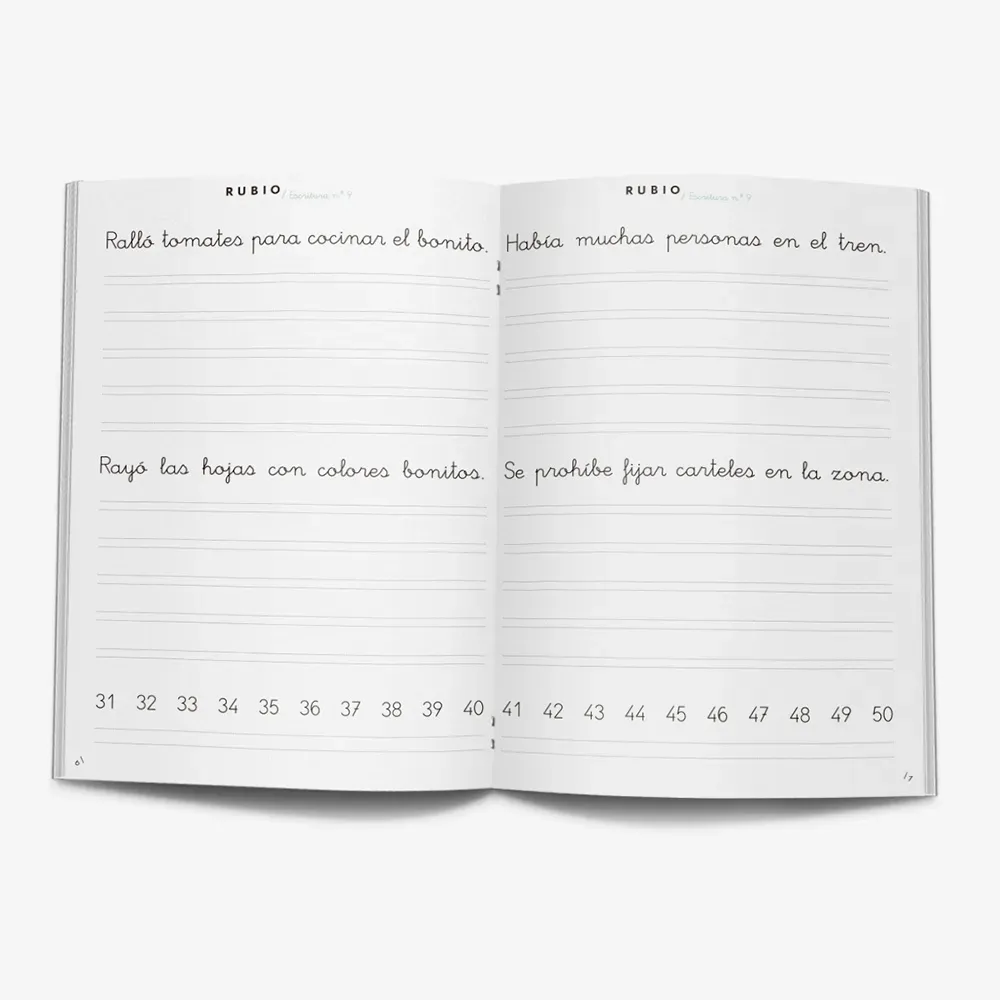 RUBIO / Escritura n.º 9
Ralló tomates para cocinar el bonito.
Rayó las hojas con colores bonitos.
31 32 33 34 35 36 37 38 39 40
6/
RUBIO / Escritura n.º 9
Había muchas personas en el tren.
Se prohíbe fijar carteles en la zona.
41 42 43 44 45 46 47 48 49 50
/7